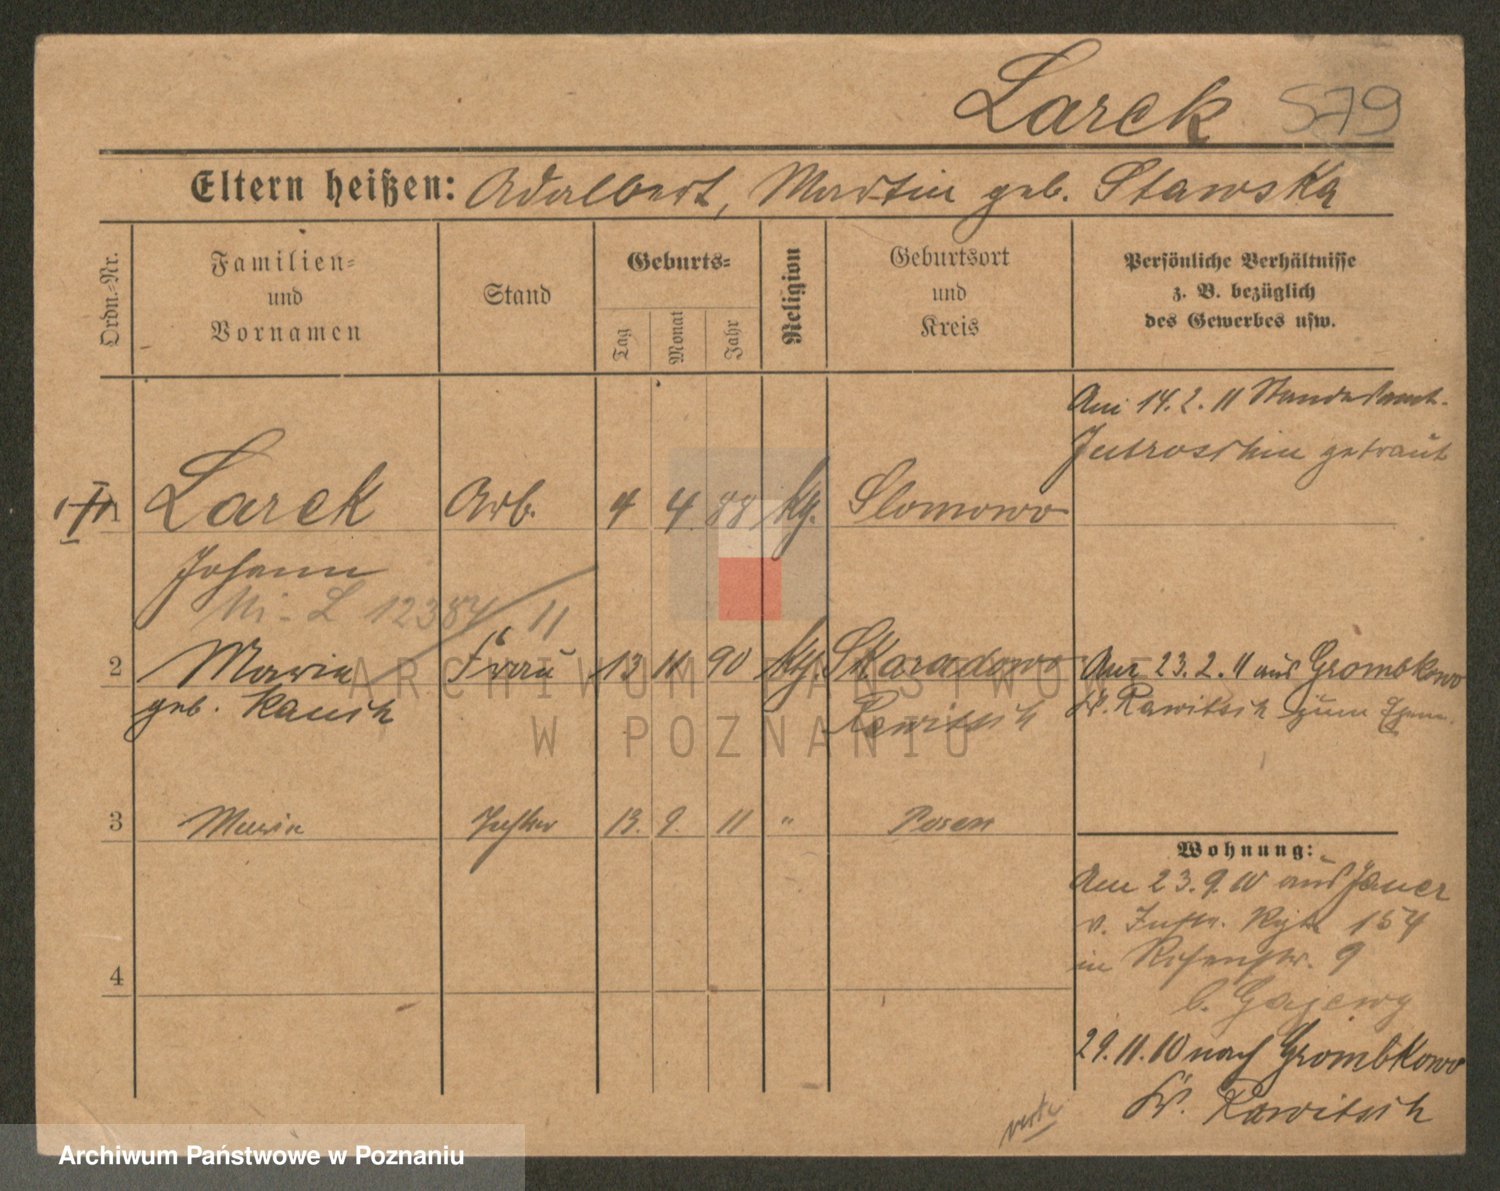 Larek 579
Eltern heißen: Adalbert, Martin geb. Stawska
Ordn.-Nr.
Familien-
und
Vornamen
Stand
Geburts-
Tag
Monat
Jahr
Religion
Geburtsort
und
Kreis
Persönliche Verhältnisse
z. B. bezüglich
des Gewerbes usw.
Am 14.2.11 Standesamt
Jutroschin getraut
Larek Arb. 4 4 88 kg. Slomowo
Johann
12384/11
2 Maria Frau 13 11 90 kg. Skaradowo Am 23.2.11 aus Grombkowo
geb. Kausch Rawitsch Kr. Rawitsch zum
3 Maria Tochter 13. 9. 11 " Posen
Wohnung:
Am 23.9.10 aus Jauer
v. Inftr. Rgt. 154
in Rosenstr. 9
b. Gajewy
4
29.11.10 nach Grombkowo
Kr. Rawitsch
verte
ARCHIWUM PAŃSTWOWE
W POZNANIU
Archiwum Państwowe w Poznaniu